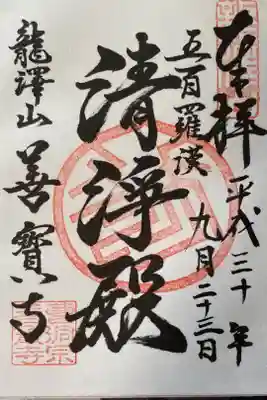 奉拝
平成三十年
九月二十三日
五百羅漢
清浄殿
龍澤山
善寳寺